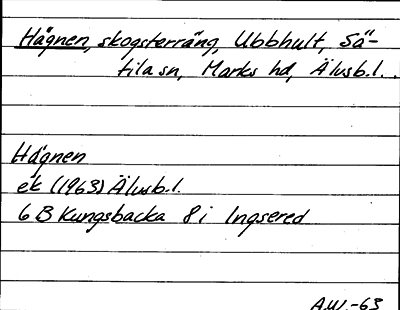 Hägnen, skogsterräng, Ubbhult, Sä-
tila sn, Marks hd, Älvsb.l.
Hägnen
ek (1963) Älvsb.l.
6 B Kungsbacka 8 i Ingsered
A.W.-63